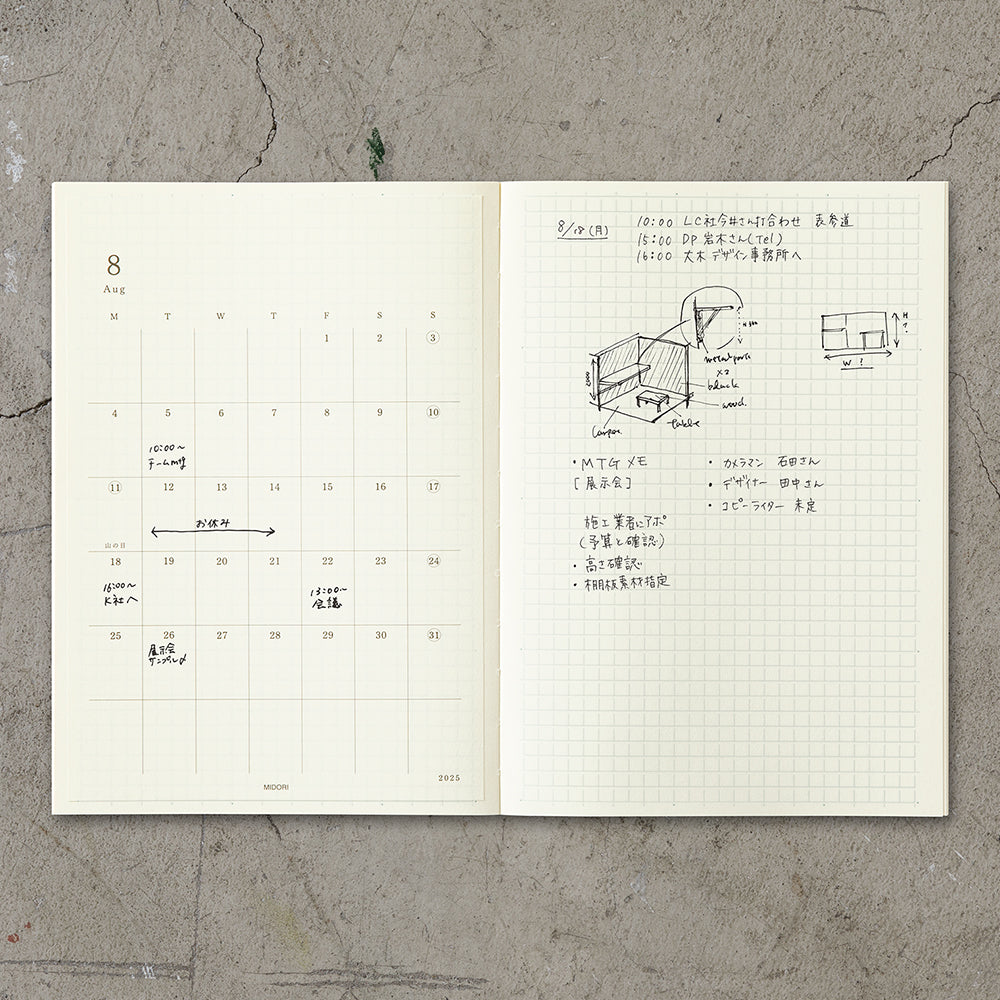 8
Aug
M T W T F S S
1 2 3
4 5 6 7 8 9 10
10:00〜
チームmtg
11 12 13 14 15 16 17
お休み
山の日
18 19 20 21 22 23 24
16:00〜
K社へ
13:00〜
会議
25 26 27 28 29 30 31
展示会
サンプル〆
2025
MIDORI
8/18(月)
10:00 LC社今井さん打合わせ 表参道
15:00 DP 岩木さん(Tel)
16:00 大木デザイン事務所へ
metal parts
×2
black
wood.
table
Carpet.
H?
W ?
・MTGメモ
[展示会]
施工業者にアポ
(予算と確認)
・高さ確認
・棚板素材指定
・カメラマン 石田さん
・デザイナー 田中さん
・コピーライター 未定